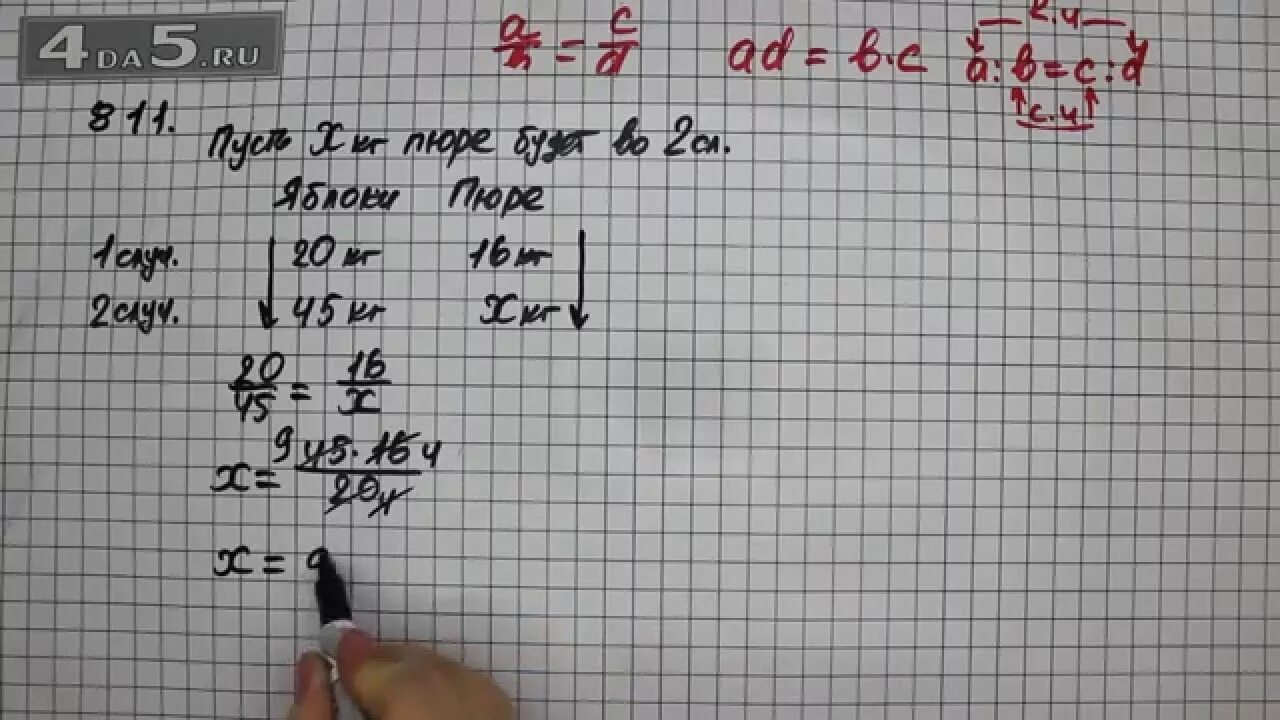 4DA5.RU
a/b = c/d ad = b·c a:b=c:d
к.ч
с.ч
811. Пусть X кг пюре будет во 2 сл.
Яблоки Пюре
1 случ. 20 кг 16 кг
2 случ. 45 кг X кг
20/45 = 16/x
x = 9 45·16 4 / 20 4
x = 9